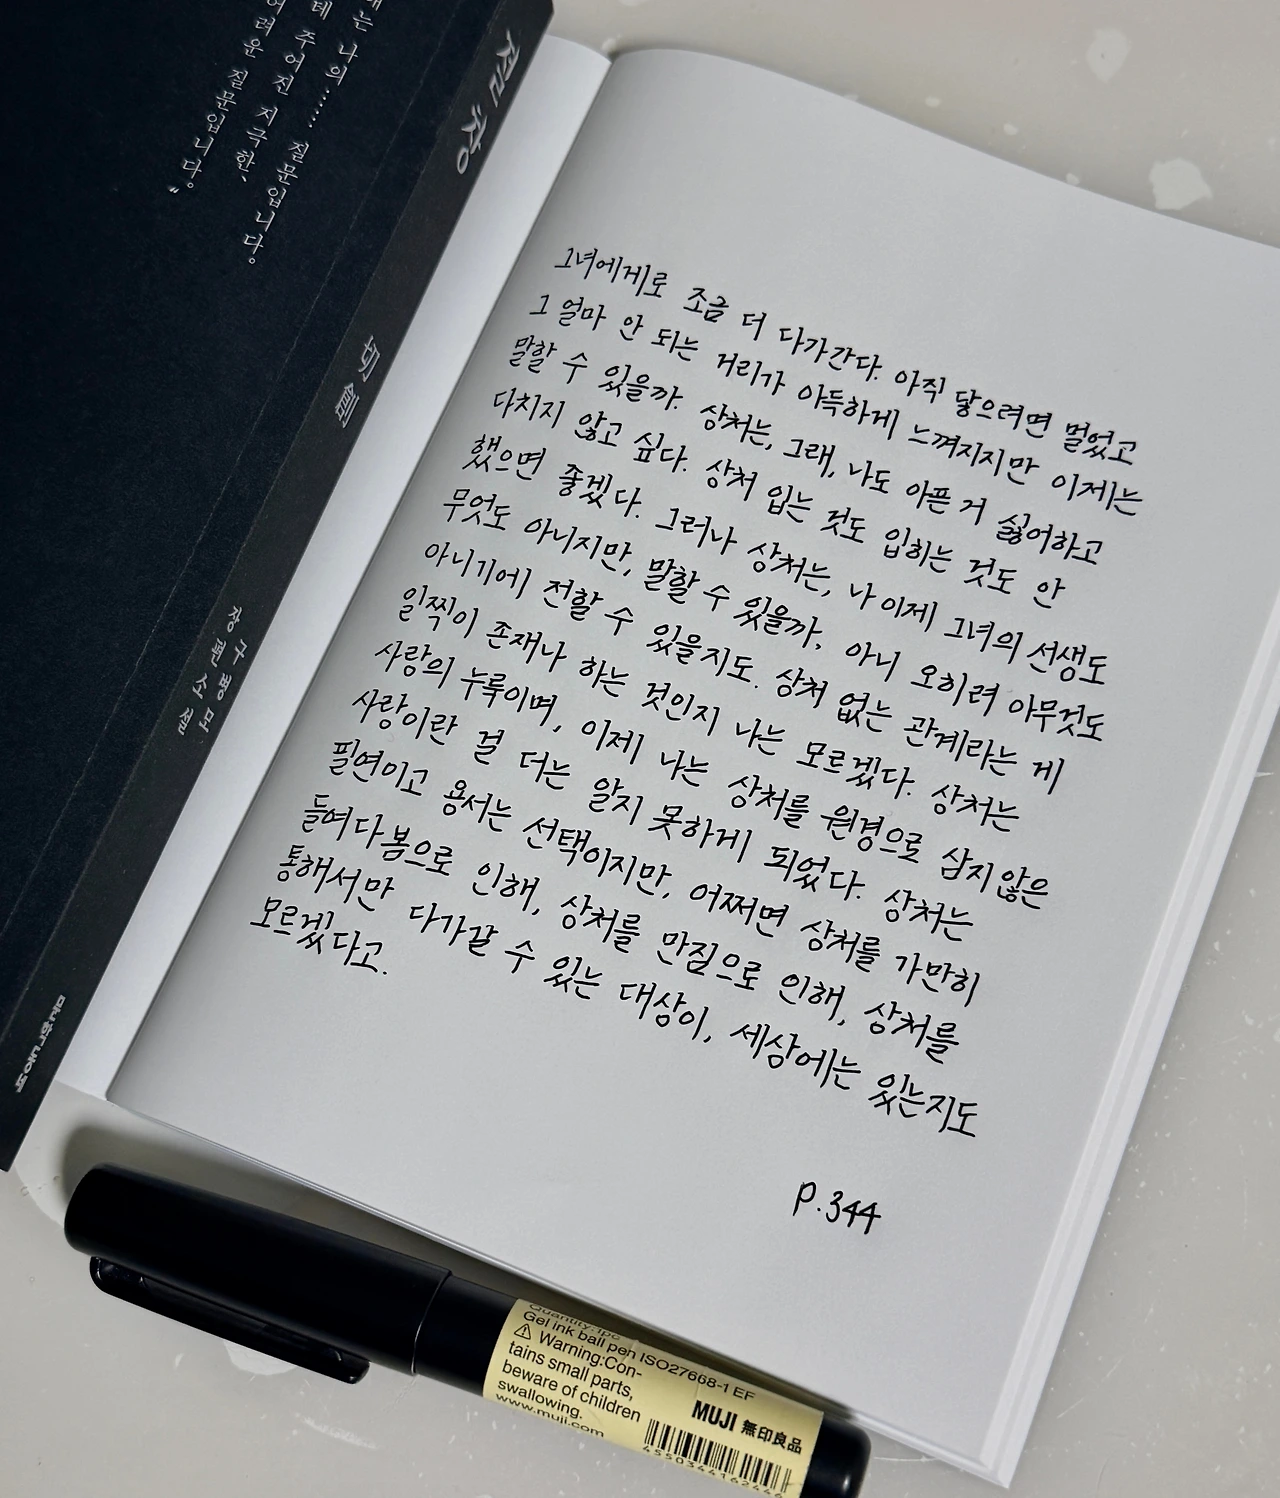 절창
切創
구병모
장편소설
문학동네
나의…… 질문입니다.
주어진 지극한,
어려운 질문입니다."
그녀에게로 조금 더 다가간다. 아직 닿으려면 멀었고
그 얼마 안 되는 거리가 아득하게 느껴지지만 이제는
말할 수 있을까. 상처는, 그래, 나도 아픈 거 싫어하고
다치지 않고 싶다. 상처 입는 것도 입히는 것도 안
했으면 좋겠다. 그러나 상처는, 나 이제 그녀의 선생도
무엇도 아니지만, 말할 수 있을까, 아니 오히려 아무것도
아니기에 전할 수 있을지도. 상처 없는 관계라는 게
일찍이 존재나 하는 것인지 나는 모르겠다. 상처는
사랑의 누룩이며, 이제 나는 상처를 원경으로 삼지 않은
사랑이란 걸 더는 알지 못하게 되었다. 상처는
필연이고 용서는 선택이지만, 어쩌면 상처를 가만히
들여다봄으로 인해, 상처를 만짐으로 인해, 상처를
통해서만 다가갈 수 있는 대상이, 세상에는 있는지도
모르겠다고.
P.344
Quantity:1pc
Gel ink ball pen ISO27668-1 EF
⚠ Warning:Con-
tains small parts,
beware of children
swallowing.
www.muji.com
MUJI 無印良品